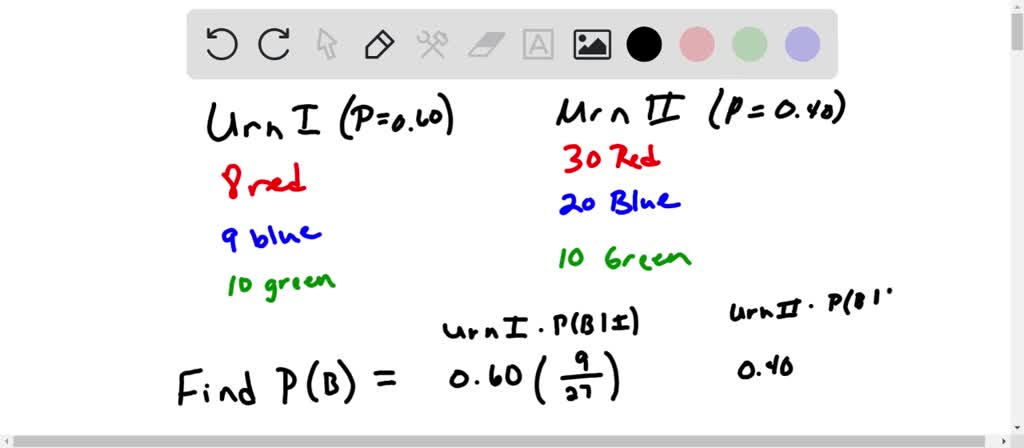 Urn I (P=0.60)
Urn II (P=0.40)
8 red
30 Red
9 blue
20 Blue
10 green
10 Green
Urn I · P(B|I)
Urn II · P(B|
Find P(B) = 0.60 (9/27)
0.40